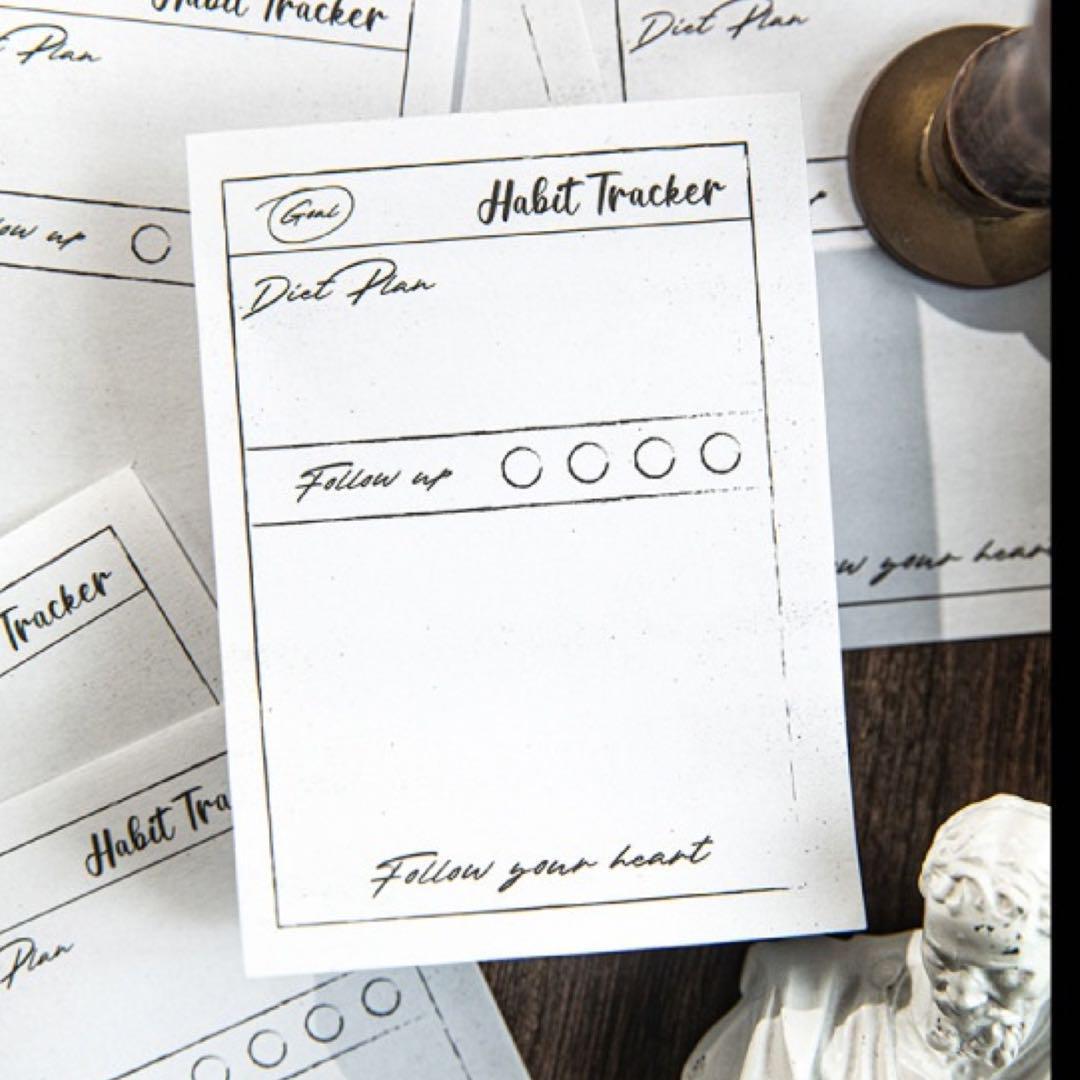 Habit Tracker
Diet Plan
Plan
Goal
Habit Tracker
Diet Plan
Follow up
up
Follow up
Tracker
your heart
Habit Tra
Follow your heart
Plan